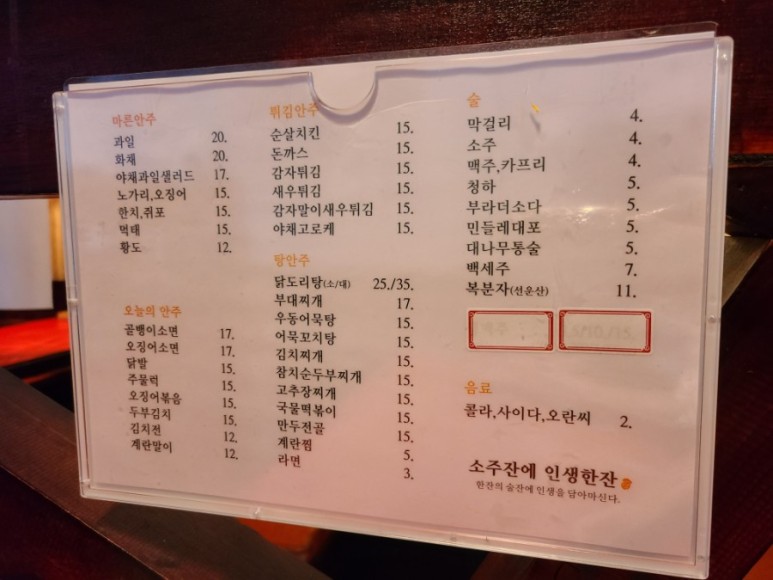 마른안주
과일 20.
화채 20.
야채과일샐러드 17.
노가리,오징어 15.
한치,쥐포 15.
먹태 15.
황도 12.
오늘의 안주
골뱅이소면 17.
오징어소면 17.
닭발 15.
주물럭 15.
오징어볶음 15.
두부김치 15.
김치전 12.
계란말이 12.
튀김안주
순살치킨 15.
돈까스 15.
감자튀김 15.
새우튀김 15.
감자말이새우튀김 15.
야채고로케 15.
탕안주
닭도리탕(소/대) 25./35.
부대찌개 17.
우동어묵탕 15.
어묵꼬치탕 15.
김치찌개 15.
참치순두부찌개 15.
고추장찌개 15.
국물떡볶이 15.
만두전골 15.
계란찜 5.
라면 3.
술
막걸리 4.
소주 4.
맥주,카프리 4.
청하 5.
부라더소다 5.
민들레대포 5.
대나무통술 5.
백세주 7.
복분자(선운산) 11.
음료
콜라,사이다,오란씨 2.
소주잔에 인생한잔
한잔의 술잔에 인생을 담아마신다.